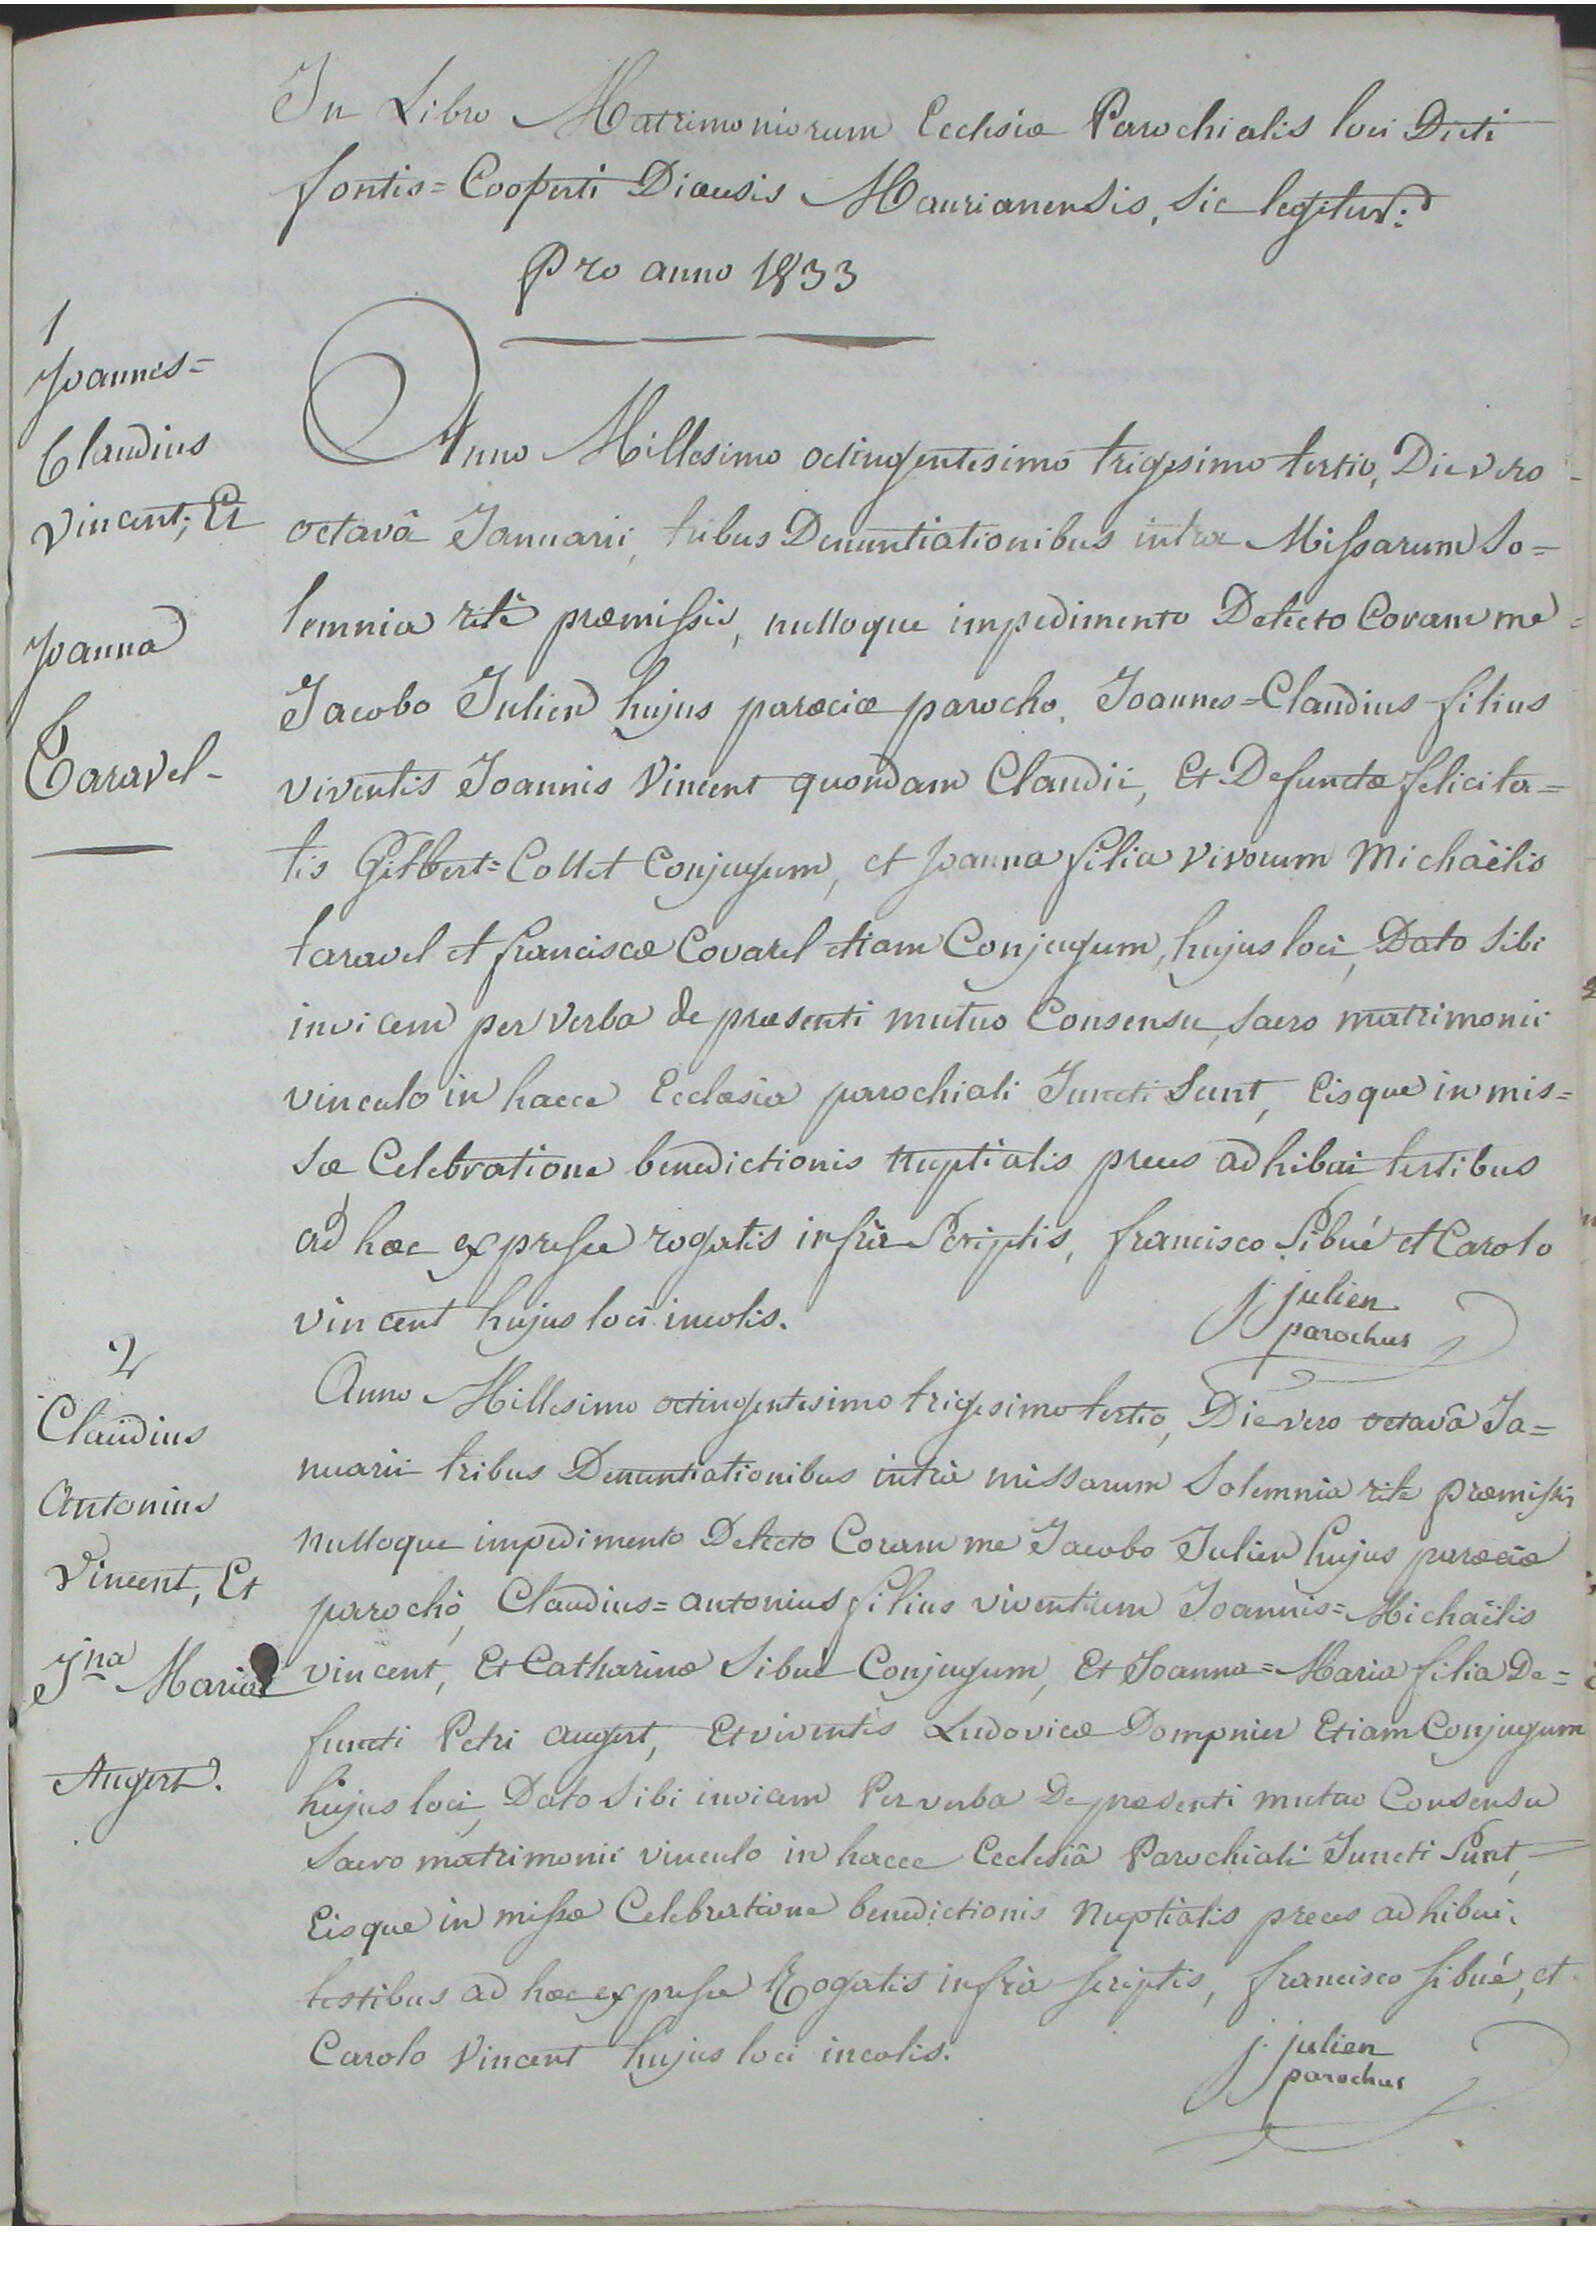 In Libro Matrimoniorum Ecclesiæ Parochialis loci Dicti
fontis=Cooperti Diœcesis Maurianensis, sic legitur:
Pro anno 1833
1
Joannes=
Claudius
Vincent, Et
Joanna
Taravel-
Anno Millesimo octingentesimo trigesimo tertio, Die vero
octavâ Januarii, tribus Denuntiationibus intra Missarum So=
lemnia ritè præmissis, nulloque impedimento Detecto Coram me
Jacobo Julien hujus parœciæ parocho, Joannes=Claudius filius
viventis Joannis Vincent quondam Claudii, Et Defunctæ felicita=
tis Gilbert=Collet Conjugum, et Joanna filia vivorum Michaëlis
taravel et franciscæ Covarel etiam Conjugum, hujus loci, Dato sibi
invicem per verba de præsenti mutuo Consensu, sacro matrimonii
vinculo in hacce Ecclesia parochiali Juncti Sunt, Eisque in mis=
sæ Celebratione benedictionis nuptialis preces adhibui testibus
ad hæc expresse rogatis infrà Scriptis, francisco Sibué et Carolo
vincent hujus loci incolis.
j julien
parochus
2
Claudius
Antonius
Vincent, Et
Jna Maria
Augert.
Anno Millesimo octingentesimo trigesimo tertio, Die vero octavâ Ja=
nuarii tribus Denuntiationibus intrà missarum Solemnia rite præmissis
nulloque impedimento Detecto Coram me Jacobo Julien hujus parœciæ
parocho, Claudius=antonius filius viventium Joannis=Michaëlis
vincent, Et Catharinæ Sibué Conjugum, Et Joanna=Maria filia De=
functi Petri augert, Et viventis Ludovicæ Dompnier Etiam Conjugum
hujus loci, Dato Sibi invicem Per verba De præsenti mutuo Consensu
Sacro matrimonii vinculo in hacce Ecclesiâ Parochiali Juncti Sunt,
Eisque in missæ Celebratione benedictionis Nuptialis preces adhibui.
testibus ad hæc expresse Rogatis infrà scriptis, francisco sibué, et
Carolo Vincent hujus loci incolis.
j. julien
parochus